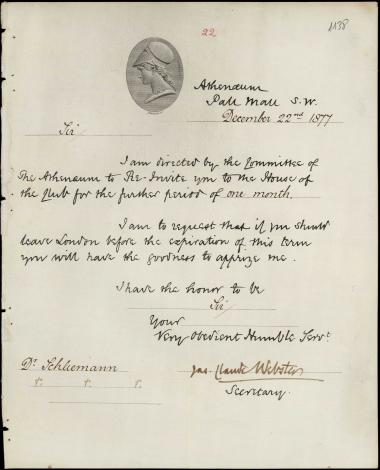 22
1138
Athenæum
Pall Mall S.W.
December 22nd 1877
Sir
I am directed by the Committee of
The Athenæum to Re-Invite you to the House of
the Club for the further period of one month.
I am to request that if you should
leave London before the expiration of this term
you will have the goodness to apprize me.
I have the honor to be
Sir
Your
Very Obedient Humble Servt
Dr Schliemann
Jas. Claude Webster
Secretary.